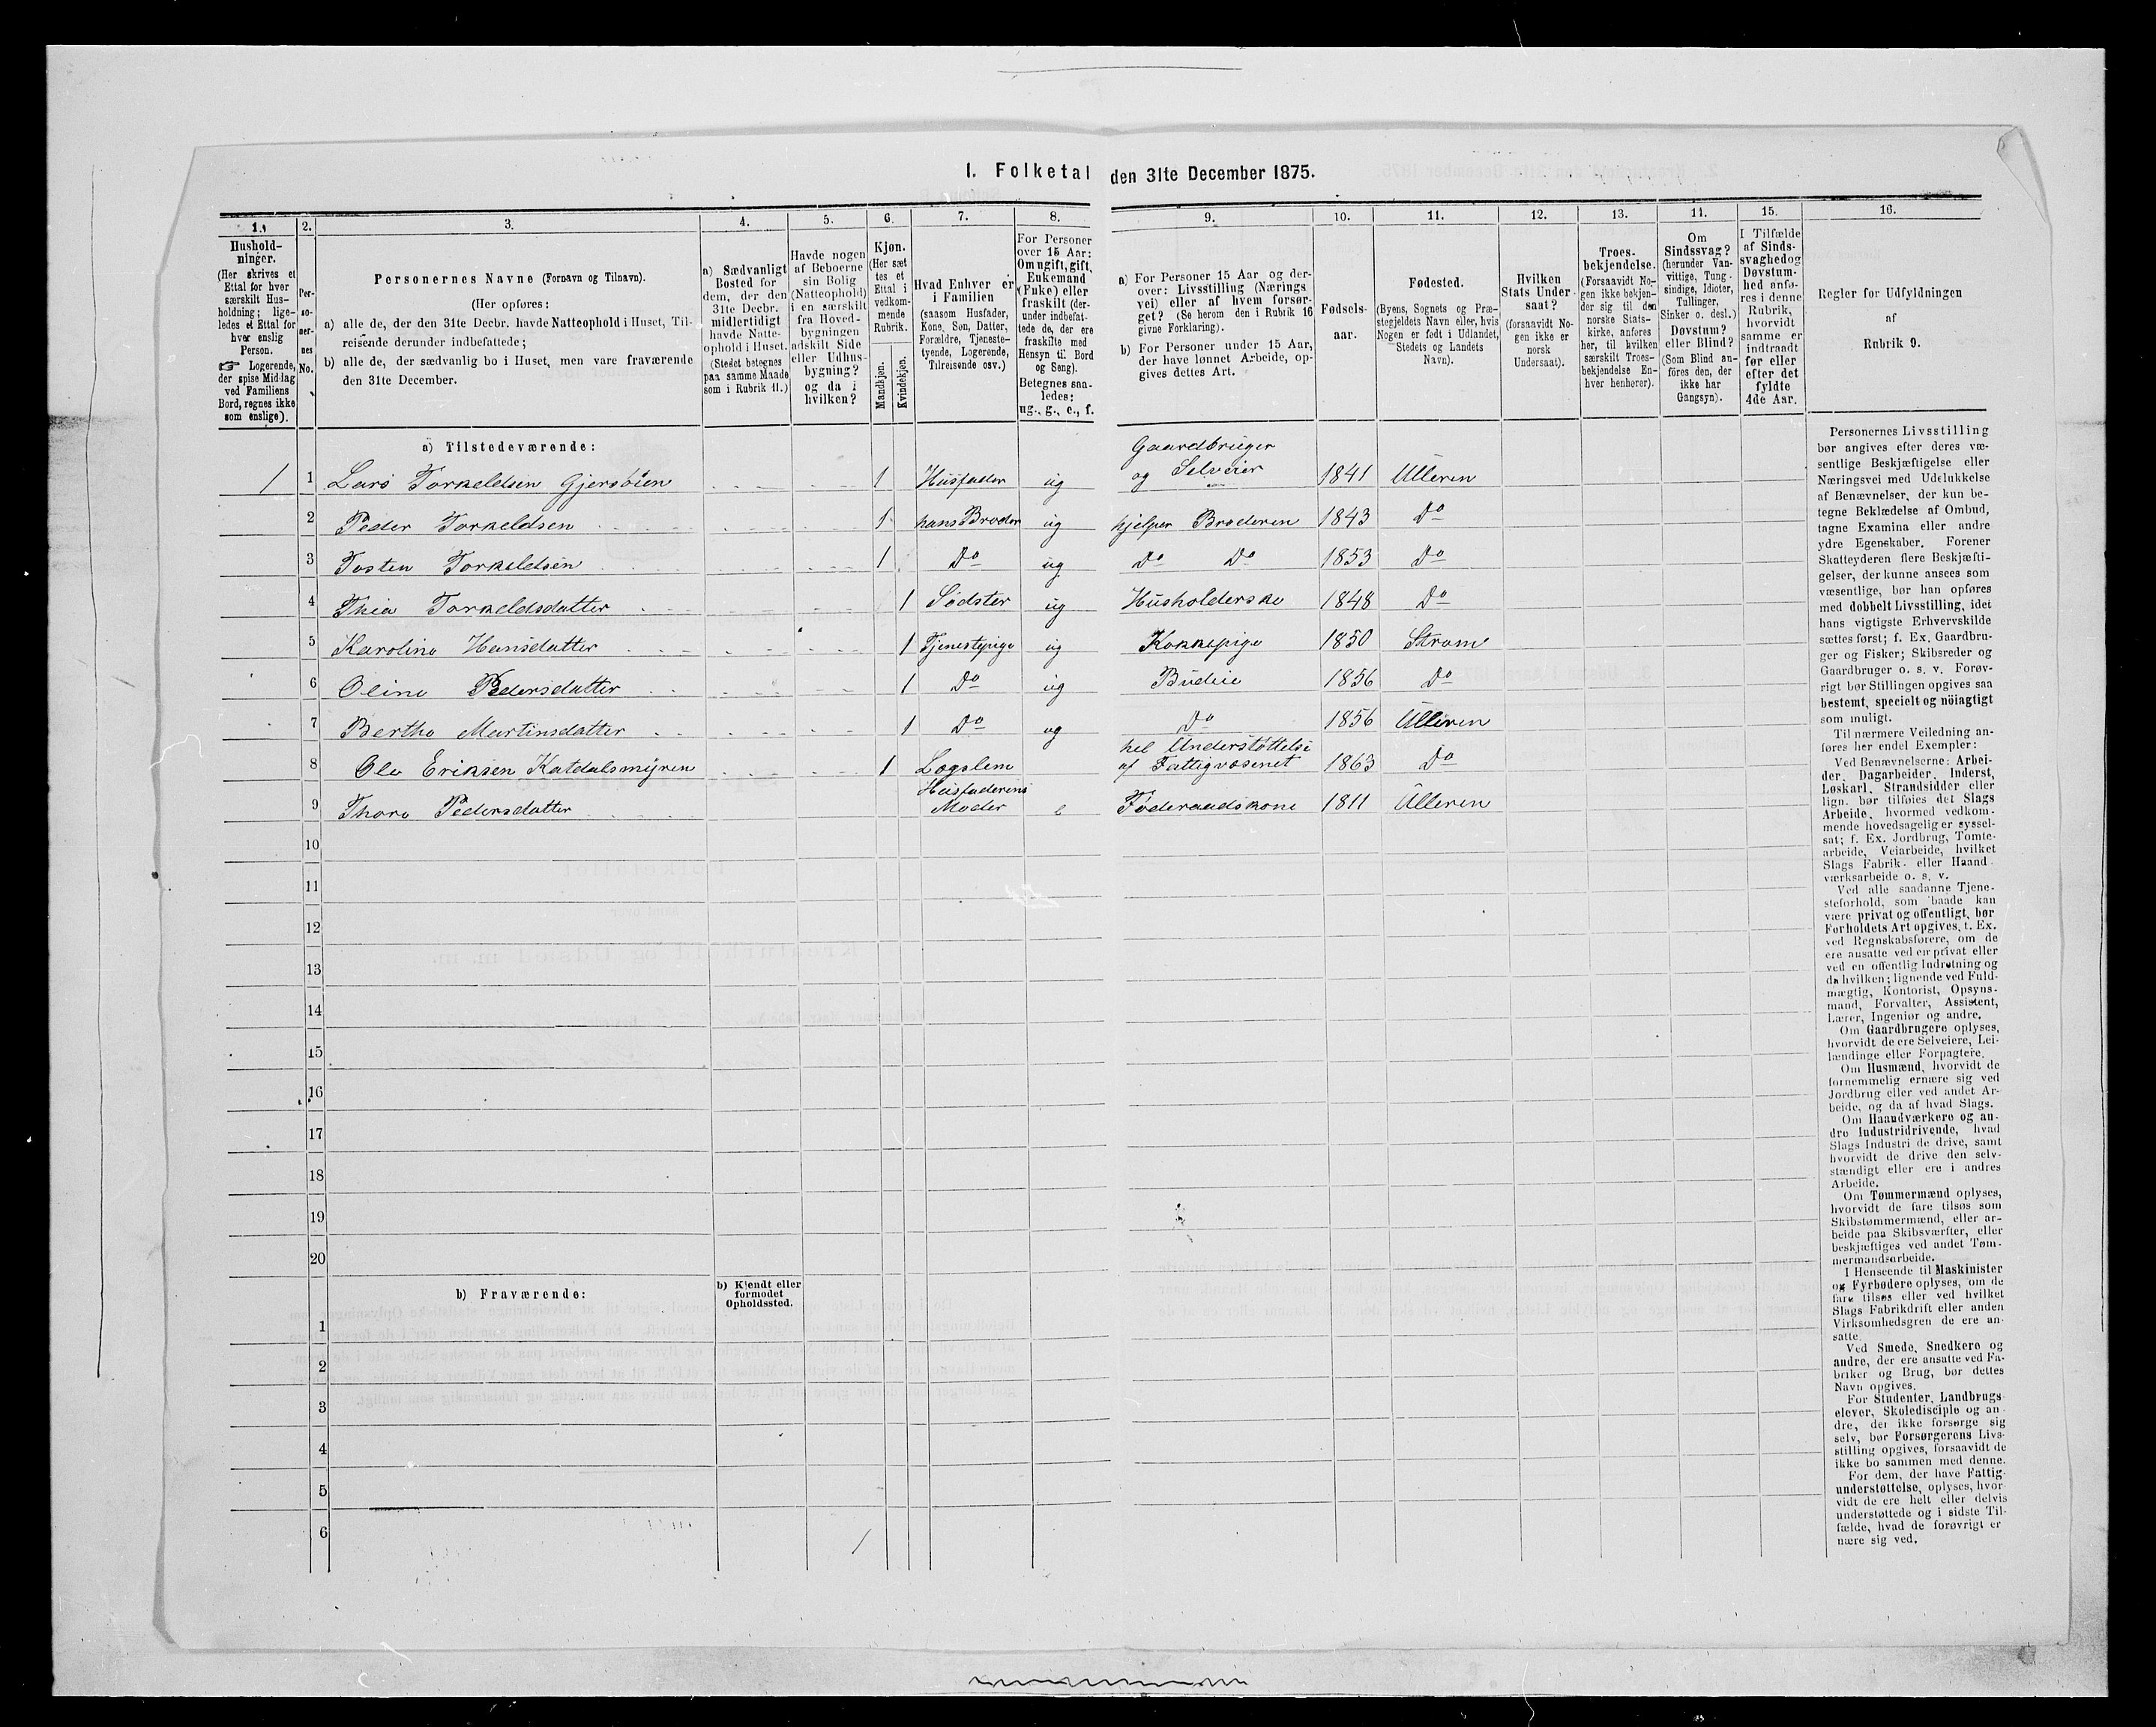 I. Folketal den 31te December 1875.
1. 2. 3. 4. 5. 6. 7. 8. 9. 10. 11. 12. 13. 11. 15. 16.
Hushold-
ninger.
(Her skrives et
Ettal for hver
særskilt Hus-
holdning; lige-
ledes et Ettal for
hver enslig
Person.
☞ Logerende,
der spise Middag
ved Familiens
Bord, regnes ikke
som enslige).
Per-
so-
ner-
nes
No.
Personernes Navne (Fornavn og Tilnavn).
(Her opføres:
a) alle de, der den 31te Decbr. havde Natteophold i Huset, Til-
reisende derunder indbefattede;
b) alle de, der sædvanlig bo i Huset, men vare fraværende
den 31te December.
a) Sædvanligt
Bosted for
dem, der den
31te Decbr.
midlertidigt
havde Natte-
ophold i Huset.
(Stedet betegnes
paa samme Maade
som i Rubrik 11.)
Havde nogen
af Beboerne
sin Bolig
(Natteophold)
i en særskilt
fra Hoved-
bygningen
adskilt Side
eller Udhus-
bygning?
og da i
hvilken?
Kjøn.
(Her sæt
tes et
Ettal i
vedkom-
mende
Rubrik.
Mandkjøn.
Kvindekjøn.
Hvad Enhver er
i Familien
(saasom Husfader,
Kone, Søn, Datter,
Forældre, Tjeneste-
tyende, Logerende,
Tilreisende osv.)
For Personer
over 15 Aar:
Om ugift, gift,
Enkemand
(Enke) eller
fraskilt (der-
under indbefat-
tede de, der ere
fraskilte med
Hensyn til Bord
og Seng).
Betegnes saa-
ledes:
ug., g., e., f.
a) For Personer 15 Aar og der-
over: Livsstilling (Nærings
vei) eller af hvem forsør-
get? (Se herom den i Rubrik 16
givne Forklaring).
b) For Personer under 15 Aar,
der have lønnet Arbeide, op-
gives dettes Art.
Fødsels-
aar.
Fødested.
(Byens, Sognets og Præ-
stegjeldets Navn eller, hvis
Nogen er født i Udlandet,
Stedets og Landets
Navn).
Hvilken
Stats Under-
saat?
(forsaavidt No-
gen ikke er
norsk
Undersaat).
Troes-
bekjendelse.
(Forsaavidt No-
gen ikke bekjen-
der sig til den
norske Stats-
kirke, anføres
her, til hvilken
særskilt Troes-
bekjendelse En-
hver henhører).
Om
Sindssvag?
(herunder Van-
vittige, Tung-
sindige, Idioter,
Tullinger,
Sinker o. desl.)
Døvstum?
eller Blind?
(Som Blind an-
føres den, der
ikke har
Gangsyn).
I Tilfælde
af Sinds-
svaghed og
Døvstum-
hed anfø-
res i denne
Rubrik,
hvorvidt
samme er
indtraadt
før eller
efter det
fyldte
4de Aar.
Regler for Udfyldningen
af
Rubrik 9.
a) Tilstedeværende:
1 1 Lars Torkeldsen Gjersøien 1 Husfader ug Gaardbruger og Selveier 1841 Ulleren
2 Peder Torkeldsen 1 hans Broder ug hjelper Broderen 1843 Do
3 Tosten Torkeldsen 1 Do ug Do Do 1853 Do
4 Thea Torkeldsdatter 1 Sødster ug Husholderske 1848 Do
5 Karoline Hansdatter 1 Tjenestepige ug Kokkepige 1850 Strøm
6 Oline Pedersdatter 1 Do ug Budeie 1856 Do
7 Berthe Martinsdatter 1 Do ug Do 1856 Ulleren
8 Ole Eriksen Katdalsmyren 1 Lægslem hel Understøttelse af Fattigvæsenet 1863 Do
9 Thore Pedersdatter Husfaderens Moder e Føderaadskone 1811 Ulleren
10
11
12
13
14
15
16
17
18
19
20
b) Fraværende:
b) Kjendt eller
formodet
Opholdssted.
1
2
3
4
5
6
Personernes Livsstilling
bør angives efter deres væ-
sentlige Beskjæftigelse eller
Næringsvei med Udelukkelse
af Benævnelser, der kun be-
tegne Beklædelse af Ombud,
tagne Examina eller andre
ydre Egenskaber. Forener
Skatteyderen flere Beskjæfti-
gelser, der kunne ansees som
væsentlige, bør han opføres
med dobbelt Livsstilling, idet
hans vigtigste Erhvervskilde
sættes først; f. Ex. Gaardbru-
ger og Fisker; Skibsreder og
Gaardbruger o. s. v. Forøv-
rigt bør Stillingen opgives saa
bestemt, specielt og nöiagtigt
som muligt.
Til nærmere Veiledning an-
føres her endel Exempler:
Ved Benævnelserne: Arbei-
der, Dagarbeider, Inderst,
Løskarl, Strandsidder eller
lign. bør tilføies det Slags
Arbeide, hvormed vedkom-
mende hovedsagelig er syssel-
sat; f. Ex. Jordbrug, Tomte-
arbeide, Veiarbeide, hvilket
Slags Fabrik- eller Haand-
værksarbeide o. s. v.
Ved alle saadanne Tjene-
steforhold, som baade kan
være privat og offentligt, bør
Forholdets Art opgives, t. Ex.
ved Regnskabsførere, om de
ere ansatte ved en privat eller
ved en offentlig Indretning og
da hvilken; lignende ved Fuld-
mægtig, Kontorist, Opsyns-
mand, Forvalter, Assistent,
Lærer, Ingeniør og andre.
Om Gaardbrugere oplyses,
hvorvidt de ere Selveiere, Lei-
lændinge eller Forpagtere.
Om Husmænd, hvorvidt de
fornemmelig ernære sig ved
Jordbrug eller ved andet Ar-
beide, og da af hvad Slags.
Om Haandværkere og an-
dre Industridrivende, hvad
Slags Industri de drive, samt
hvorvidt de drive den selv-
stændigt eller ere i andres
Arbeide.
Om Tømmermænd oplyses,
hvorvidt de fare tilsøs som
Skibstømmermænd, eller ar-
beide paa Skibsværfter, eller
beskjæftiges ved andet Tøm-
mermandsarbeide.
I Henseende til Maskinister
og Fyrbødere oplyses, om de
fare tilsøs eller ved hvilket
Slags Fabrikdrift eller anden
Virksomhedsgren de ere an-
satte.
Ved Smede, Snedkere og
andre, der ere ansatte ved Fa-
briker og Brug, bør dettes
Navn opgives.
For Studenter, Landbrugs-
elever, Skoledisciple og an-
dre, der ikke forsørge sig
selv, bør Forsørgerens Livs-
stilling opgives, forsaavidt de
ikke bo sammen med denne.
For dem, der have Fattig-
understøttelse, oplyses, hvor-
vidt de ere helt eller delvis
understøttede og i sidste Til-
fælde, hvad de forøvrigt er
nære sig ved.